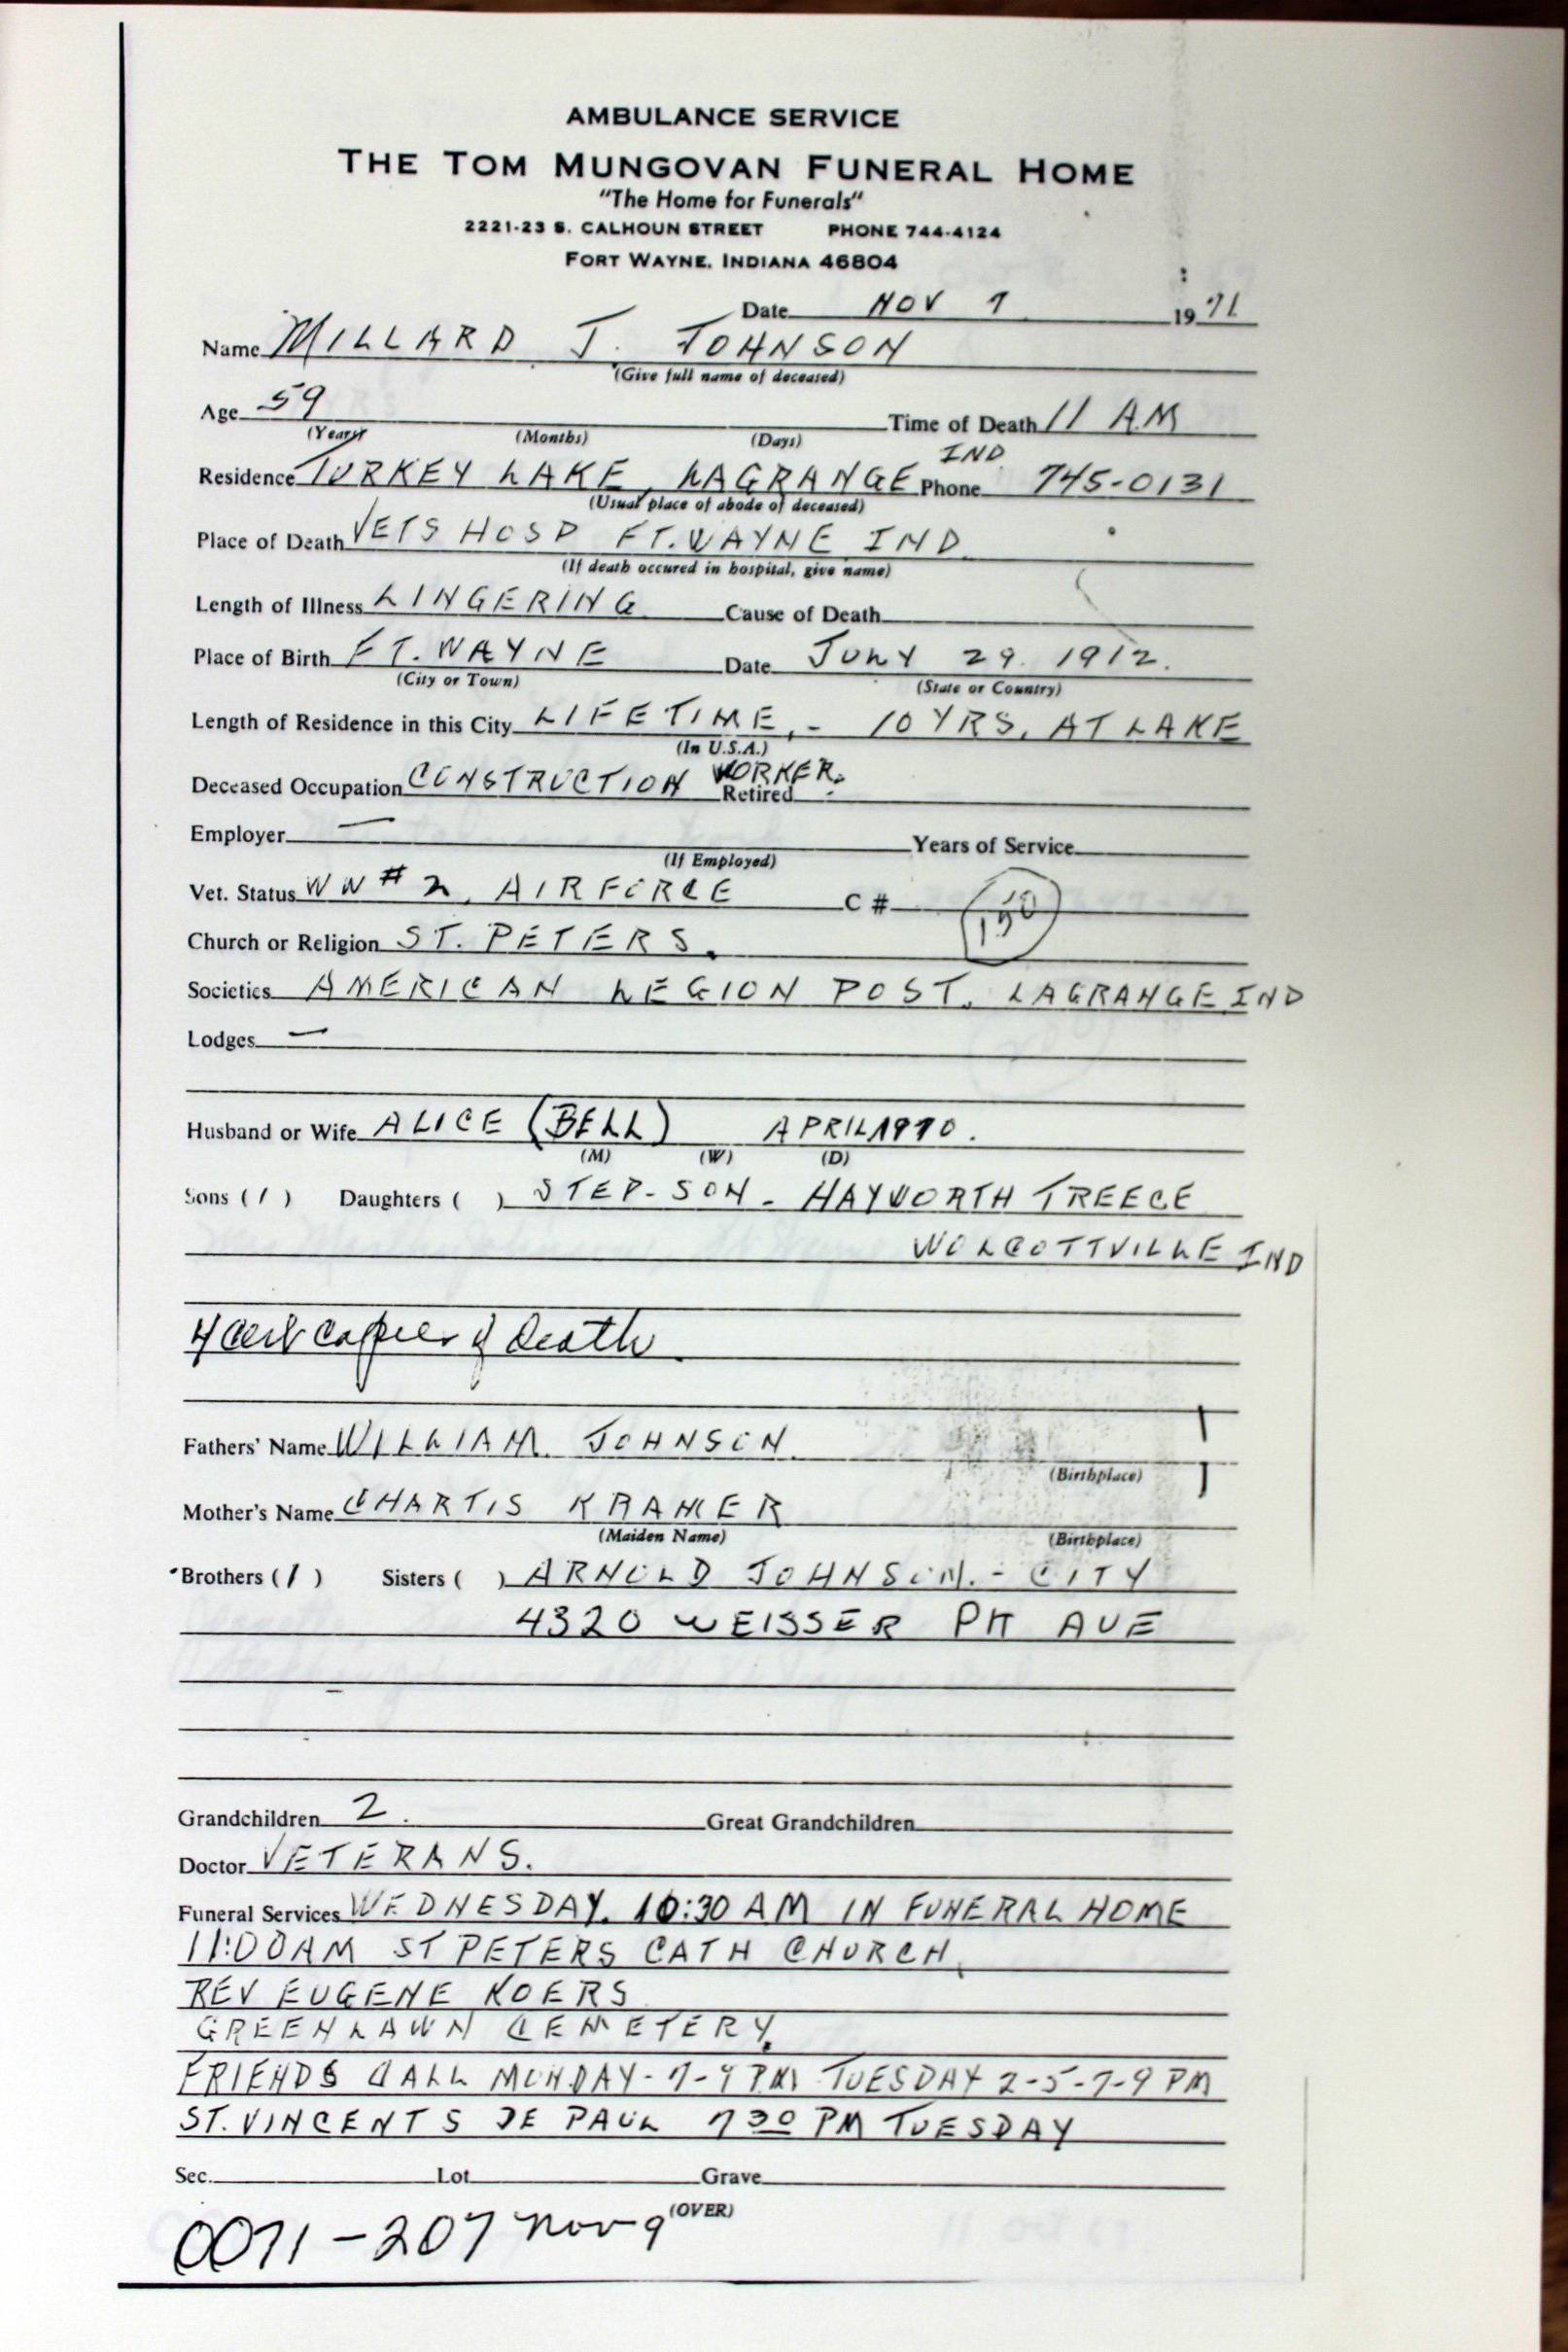 AMBULANCE SERVICE
THE TOM MUNGOVAN FUNERAL HOME
"The Home for Funerals"
2221-23 S. CALHOUN STREET PHONE 744-4124
FORT WAYNE, INDIANA 46804
Date NOV 7 1971
Name MILLARD J. JOHNSON
(Give full name of deceased)
Age 59 Time of Death 11 AM
(Years) (Months) (Days)
Residence TURKEY LAKE, LAGRANGE IND Phone 745-0131
(Usual place of abode of deceased)
Place of Death VETS HOSP FT. WAYNE IND
(If death occured in hospital, give name)
Length of Illness LINGERING Cause of Death
Place of Birth FT. WAYNE Date JULY 29. 1912.
(City or Town) (State or Country)
Length of Residence in this City LIFETIME, - 10 YRS, AT LAKE
(In U.S.A.)
Deceased Occupation CONSTRUCTION WORKER. Retired
Employer — Years of Service
(If Employed)
Vet. Status WW # 2, AIRFORCE C #
Church or Religion ST. PETERS.
150
Societies AMERICAN LEGION POST. LAGRANGE IND
Lodges —
Husband or Wife ALICE (BELL) APRIL 1970.
(M) (W) (D)
Sons (1) Daughters ( ) STEP-SON - HAYWORTH TREECE
WOLCOTTVILLE IND
4 cert copies of death
Fathers' Name WILLIAM JOHNSON
(Birthplace)
Mother's Name CHARTIS KRAMER
(Maiden Name) (Birthplace)
Brothers (1) Sisters ( ) ARNOLD JOHNSON. - CITY
4320 WEISSER PK AVE
Grandchildren 2. Great Grandchildren
Doctor VETERANS.
Funeral Services WEDNESDAY. 10:30 AM IN FUNERAL HOME
11:00 AM ST PETERS CATH CHURCH,
REV EUGENE KOERS
GREENLAWN CEMETERY.
FRIENDS CALL MONDAY - 7-9 PM TUESDAY 2-5-7-9 PM
ST. VINCENTS DE PAUL 730 PM TUESDAY
Sec. Lot Grave
(OVER)
0071-207 Nov 9